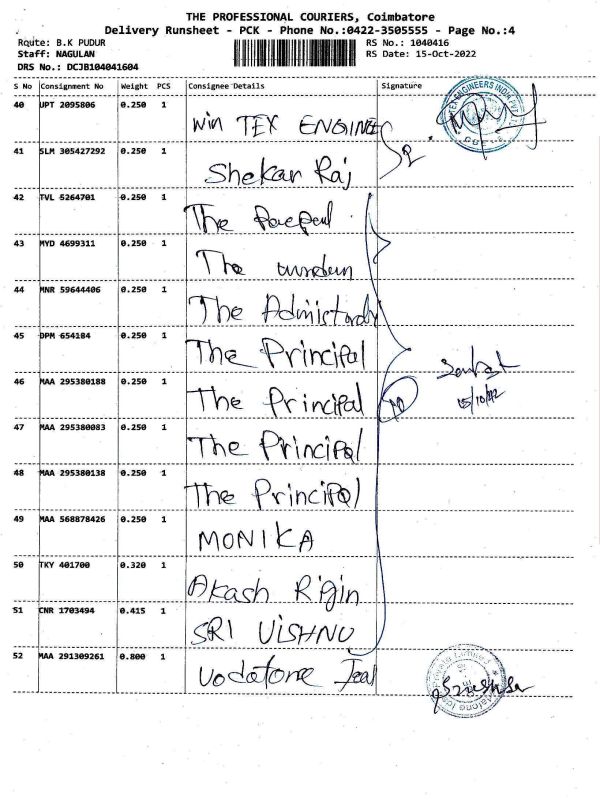 THE PROFESSIONAL COURIERS, Coimbatore
Delivery Runsheet - PCK - Phone No.:0422-3505555 - Page No.:4
Route: B.K PUDUR RS No.: 1040416
Staff: NAGULAN RS Date: 15-Oct-2022
DRS No.: DCJB104041604
S No Consignment No Weight PCS Consignee Details Signature
40 UPT 2095806 0.250 1 Win TEX ENGINEE
41 SLM 305427292 0.250 1 Shekar Raj
42 TVL 5264701 0.250 1 The
43 MYD 4699311 0.250 1 The
44 MNR 59644406 0.250 1 The
45 DPM 654184 0.250 1 The Principal
46 MAA 295380188 0.250 1 The Principal
15/10/22
47 MAA 295380083 0.250 1 The Principal
48 MAA 295380138 0.250 1 The Principal
49 MAA 568878426 0.250 1 MONIKA
50 TKY 401700 0.320 1 Akash
51 CNR 1703494 0.415 1 SRI VISHNU
52 MAA 291309261 0.800 1